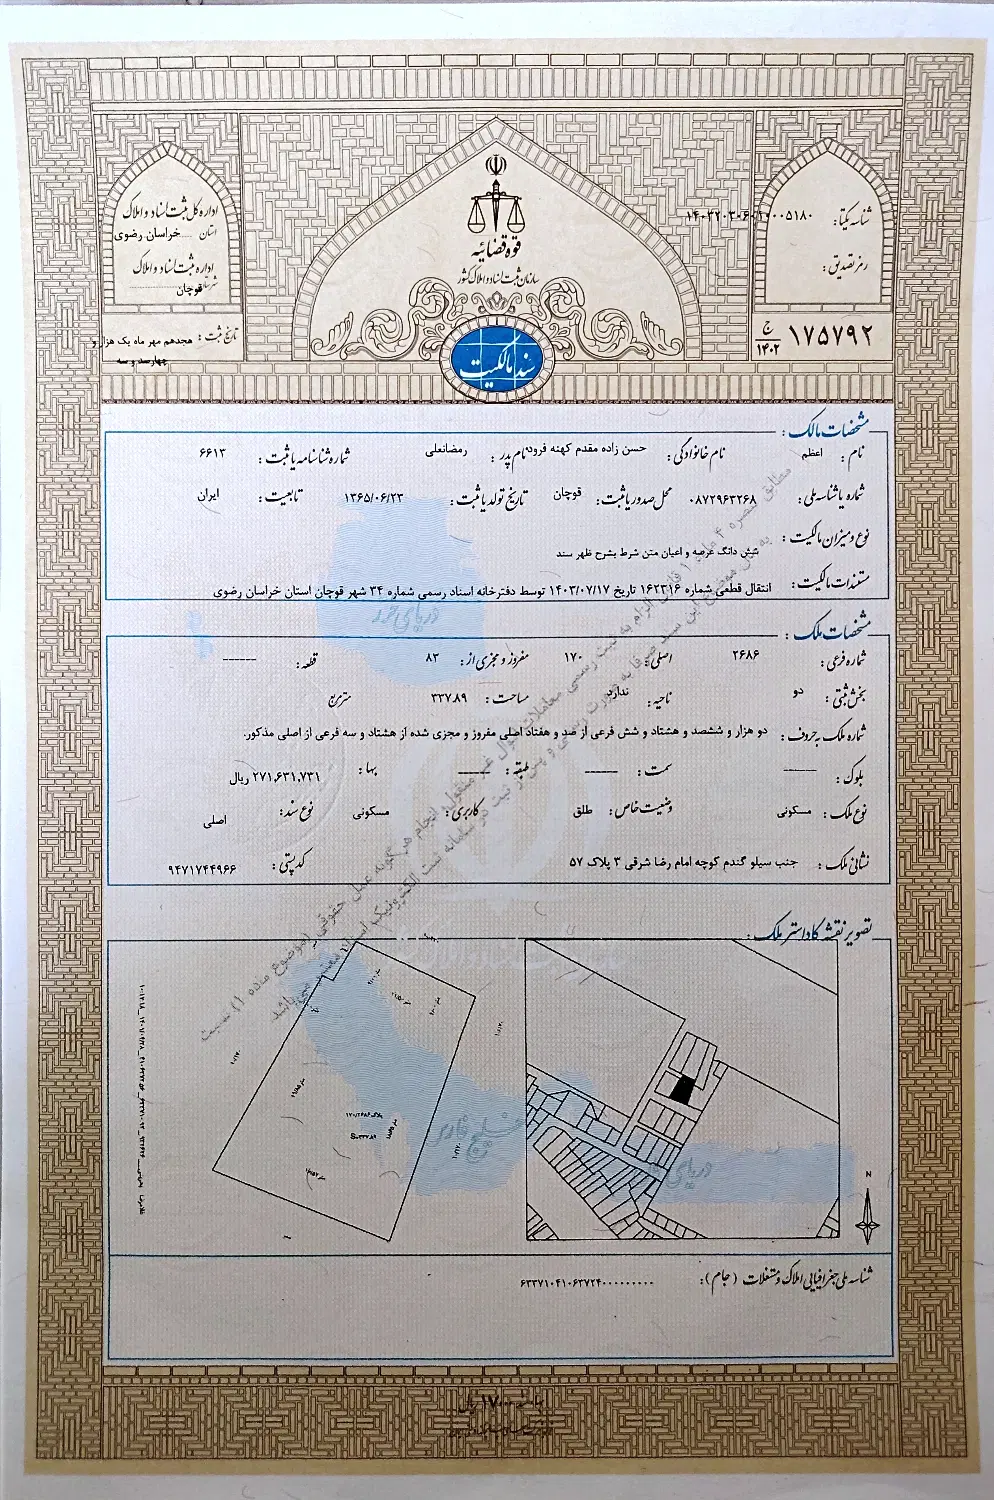 اداره کل ثبت اسناد و املاک
استان خراسان رضوی
اداره ثبت اسناد و املاک
شهرستان قوچان
تاریخ ثبت : هجدهم مهر ماه یک هزار و چهارصد و سه
قوه قضائیه
سازمان ثبت اسناد و املاک کشور
سند مالکیت
شناسه یکتا: ۱۴۰۳۲۰۳۰۶۰۱۰۰۰۵۱۸۰
رمز تصدیق :
۱۷۵۷۹۲ ج ۱۴۰۲
مشخصات مالک :
نام : اعظم نام خانوادگی : حسن زاده مقدم کهنه فرود نام پدر : رمضانعلی شماره شناسنامه یا ثبت : ۶۶۱۳
شماره یا شناسه ملی : ۰۸۷۲۹۶۳۲۶۸ محل صدور یا ثبت : قوچان تاریخ تولد یا ثبت : ۱۳۶۵/۰۶/۲۳ تابعیت : ایران
نوع و میزان مالکیت :
شش دانگ عرصه و اعیان متن شرط بشرح ظهر سند
مستندات مالکیت : انتقال قطعی شماره ۱۶۲۳۱۶ تاریخ ۱۴۰۳/۰۷/۱۷ توسط دفترخانه اسناد رسمی شماره ۳۴ شهر قوچان استان خراسان رضوی
دریای خزر
مشخصات ملک :
شماره فرعی : ۲۶۸۶ اصلی : ۱۷۰ مفروز و مجزی از : ۸۳ قطعه : ------
بخش ثبتی : دو ناحیه : ندارد مساحت : ۳۳۷.۸۹ مترمربع
شماره ملک به حروف : دو هزار و ششصد و هشتاد و شش فرعی از صد و هفتاد اصلی مفروز و مجزی شده از هشتاد و سه فرعی از اصلی مذکور.
بلوک : ------ سمت : ------ طبقه : ------ بها : ۲۷۱,۶۳۱,۷۳۱ ریال
نوع ملک : مسکونی وضعیت خاص : طلق کاربری : مسکونی نوع سند : اصلی
نشانی ملک : جنب سیلو گندم کوچه امام رضا شرقی ۳ پلاک ۵۷ کد پستی : ۹۴۷۱۷۴۴۹۶۶
مطابق تبصره ۴ ماده ۱ قانون الزام به ثبت رسمی معاملات اموال غیرمنقول، انجام هرگونه عمل حقوقی (موضوع ماده ۱) نسبت
به موضوع این سند صرفا به صورت رسمی و پس از ثبت در سامانه ثبت الکترونیک اسناد معتبر می باشد
تصویر نقشه کاداستر ملک :
پلاک ۱۷۰/۲۶۸۶
S=۳۳۷.۸۹
خلیج فارس
دریای
N
شناسه ملی جغرافیایی املاک و مستغلات (جام) : ۶۳۳۷۱۰۴۱۰۶۳۷۲۴۰۰۰۰۰۰۰۰۰